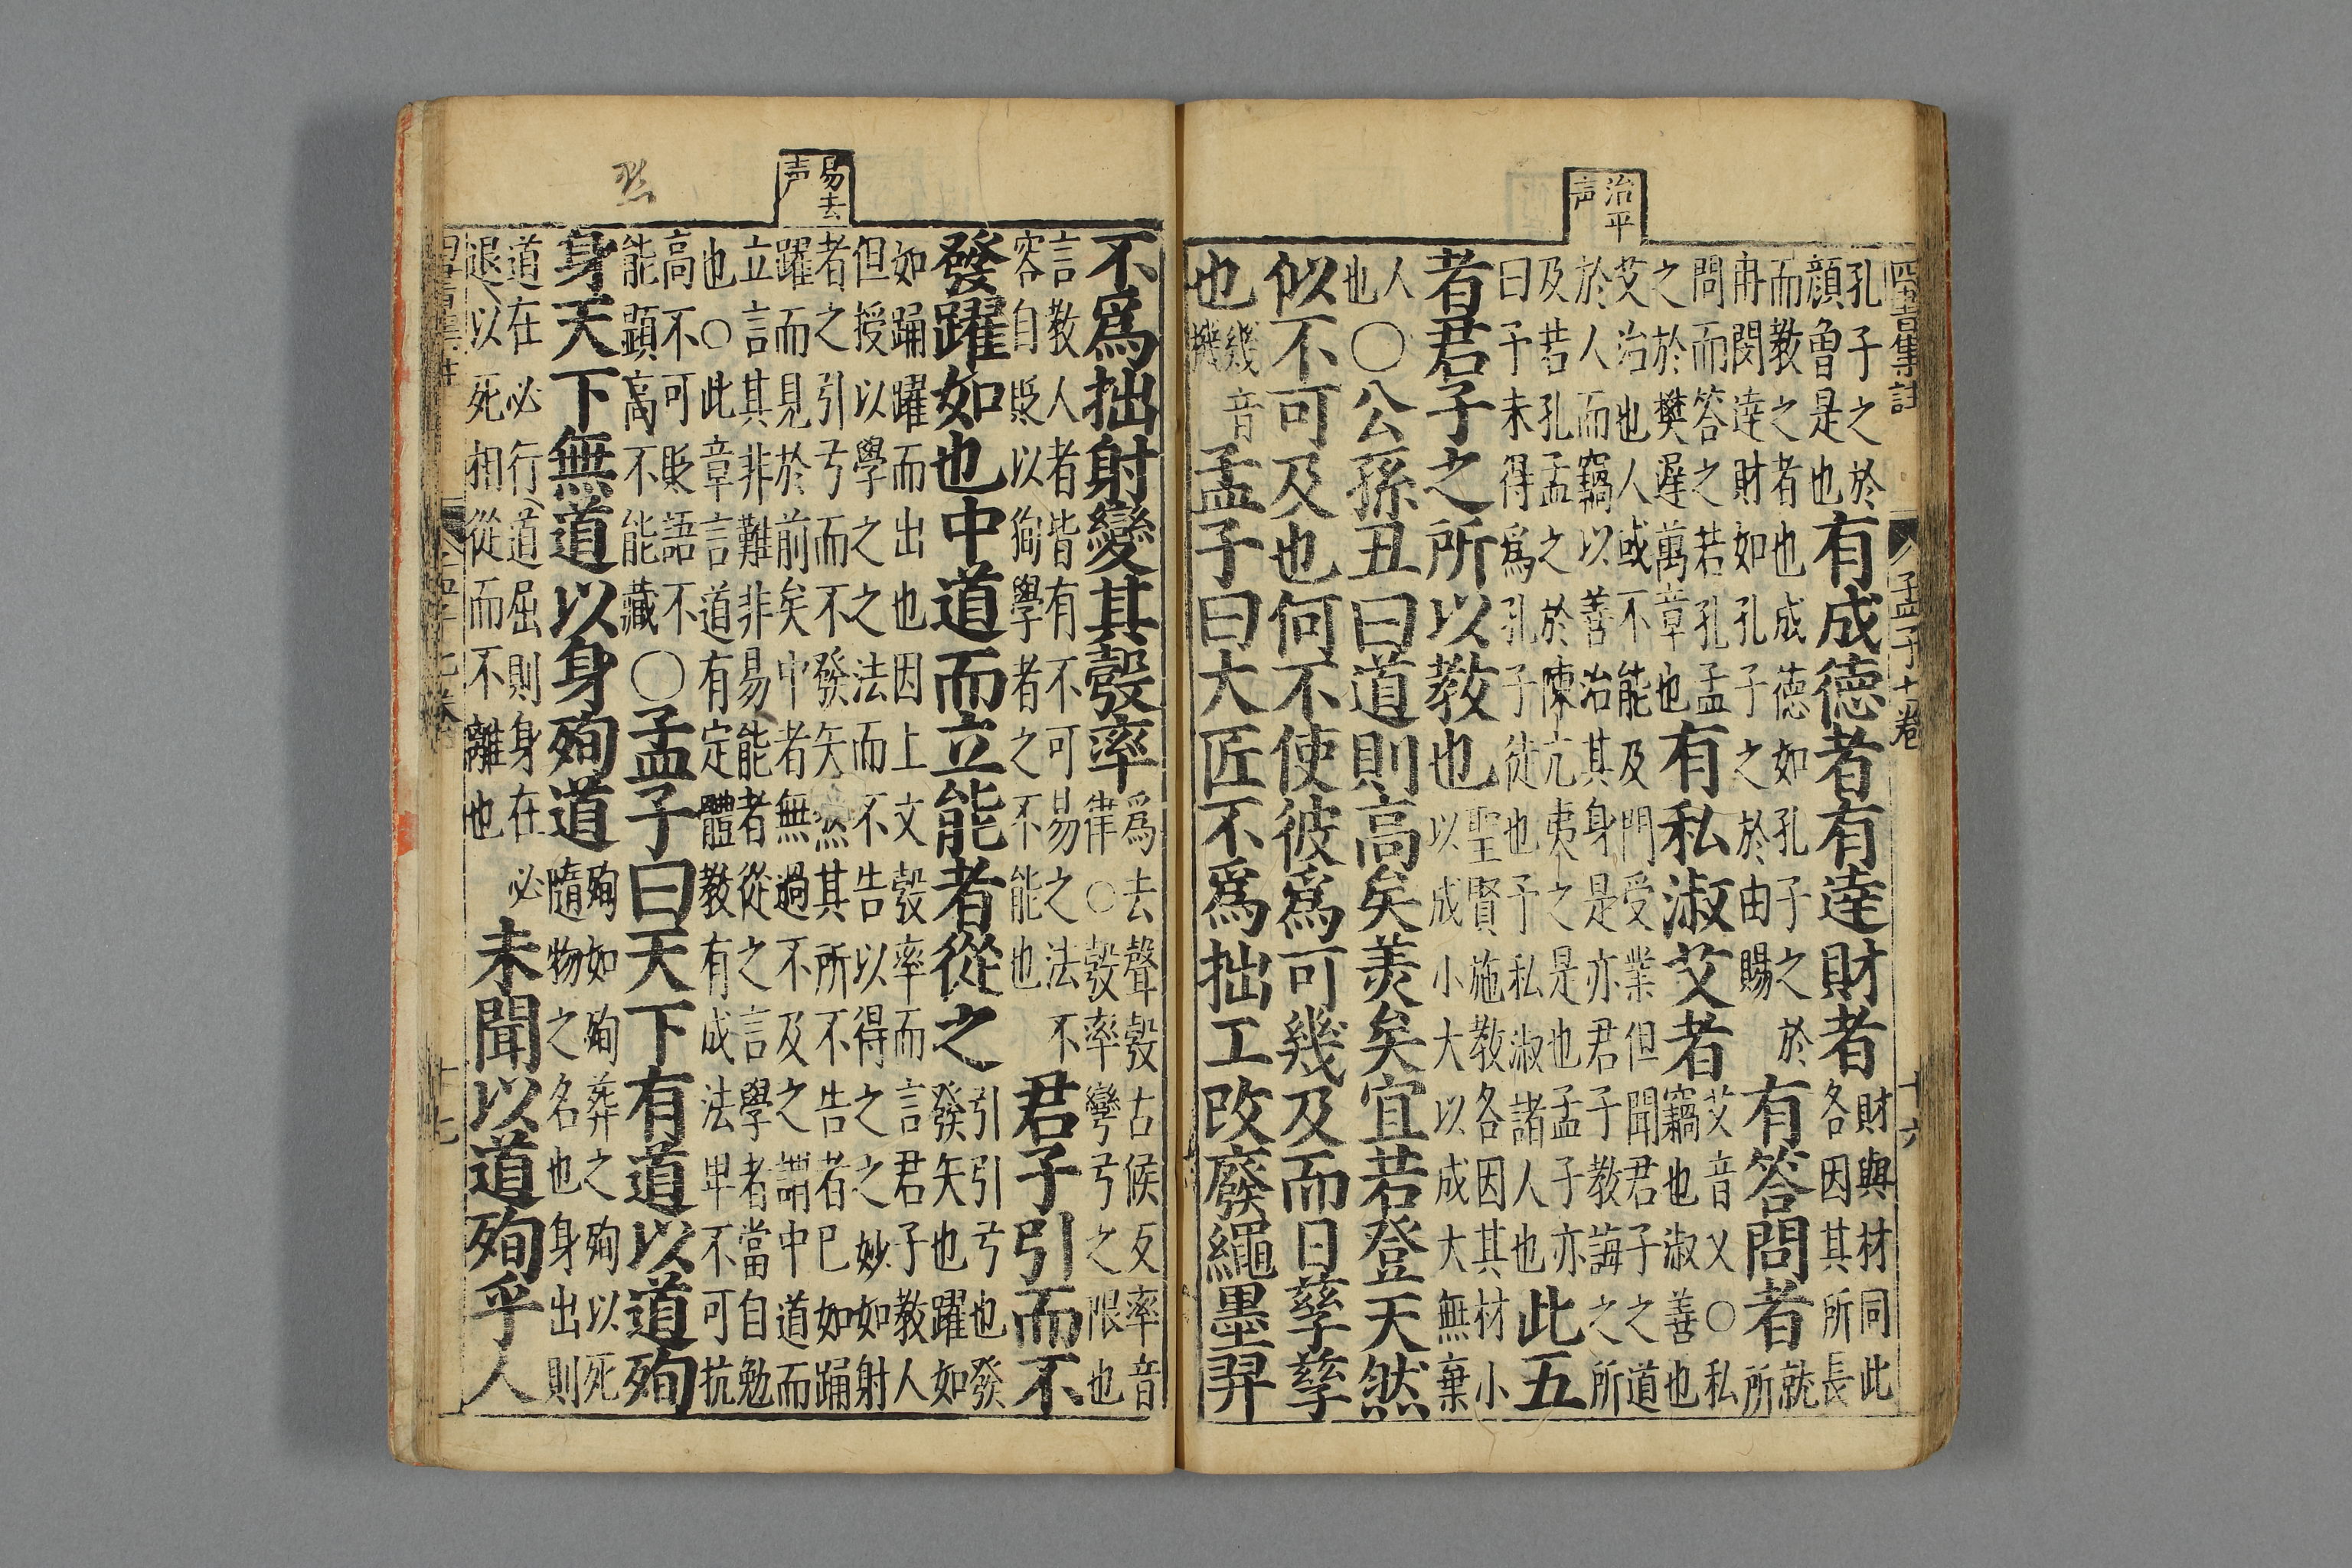 四書集註 孟子十卷 十六
治平声
孔子之於顏曾是也有成德者有達財者財與材同此各因其所長
而教之者也成德如孔子之於冉閔達財如孔子之於由賜有答問者就所
問而答之若孔孟之於樊遲萬章也有私淑艾者艾音乂○私竊也淑善也
艾治也人或不能及門受業但聞君子之道於人而竊以善治其身是亦君子教誨之所
及若孔孟之於陳亢夷之是也孟子亦曰予未得爲孔子徒也予私淑諸人也此五
者君子之所以教也聖賢施教各因其材小以成小大以成大無棄
人也○公孫丑曰道則高矣美矣宜若登天然
似不可及也何不使彼爲可幾及而日孳孳
也幾音機孟子曰大匠不爲拙工改廢繩墨羿
易去声
不爲拙射變其彀率爲去聲彀古候反率音律○彀率彎弓之限也
言教人者皆有不可易之法不容自貶以徇學者之不能也君子引而不
發躍如也中道而立能者從之引引弓也發發矢也躍如
如踊躍而出也因上文彀率而言君子教人但授以學之之法而不告以得之之妙如射
者之引弓而不發矢然其所不告者已如踊躍而見於前矣中者無過不及之謂中道而
立言其非難非易能者從之言學者當自勉也○此章言道有定體教有成法卑不可抗
高不可貶語不能顯高不能藏○孟子曰天下有道以道殉
身天下無道以身殉道殉如殉葬之殉以死隨物之名也身出則
道在必行道屈則身在必退以死相從而不離也未聞以道殉乎人
十七